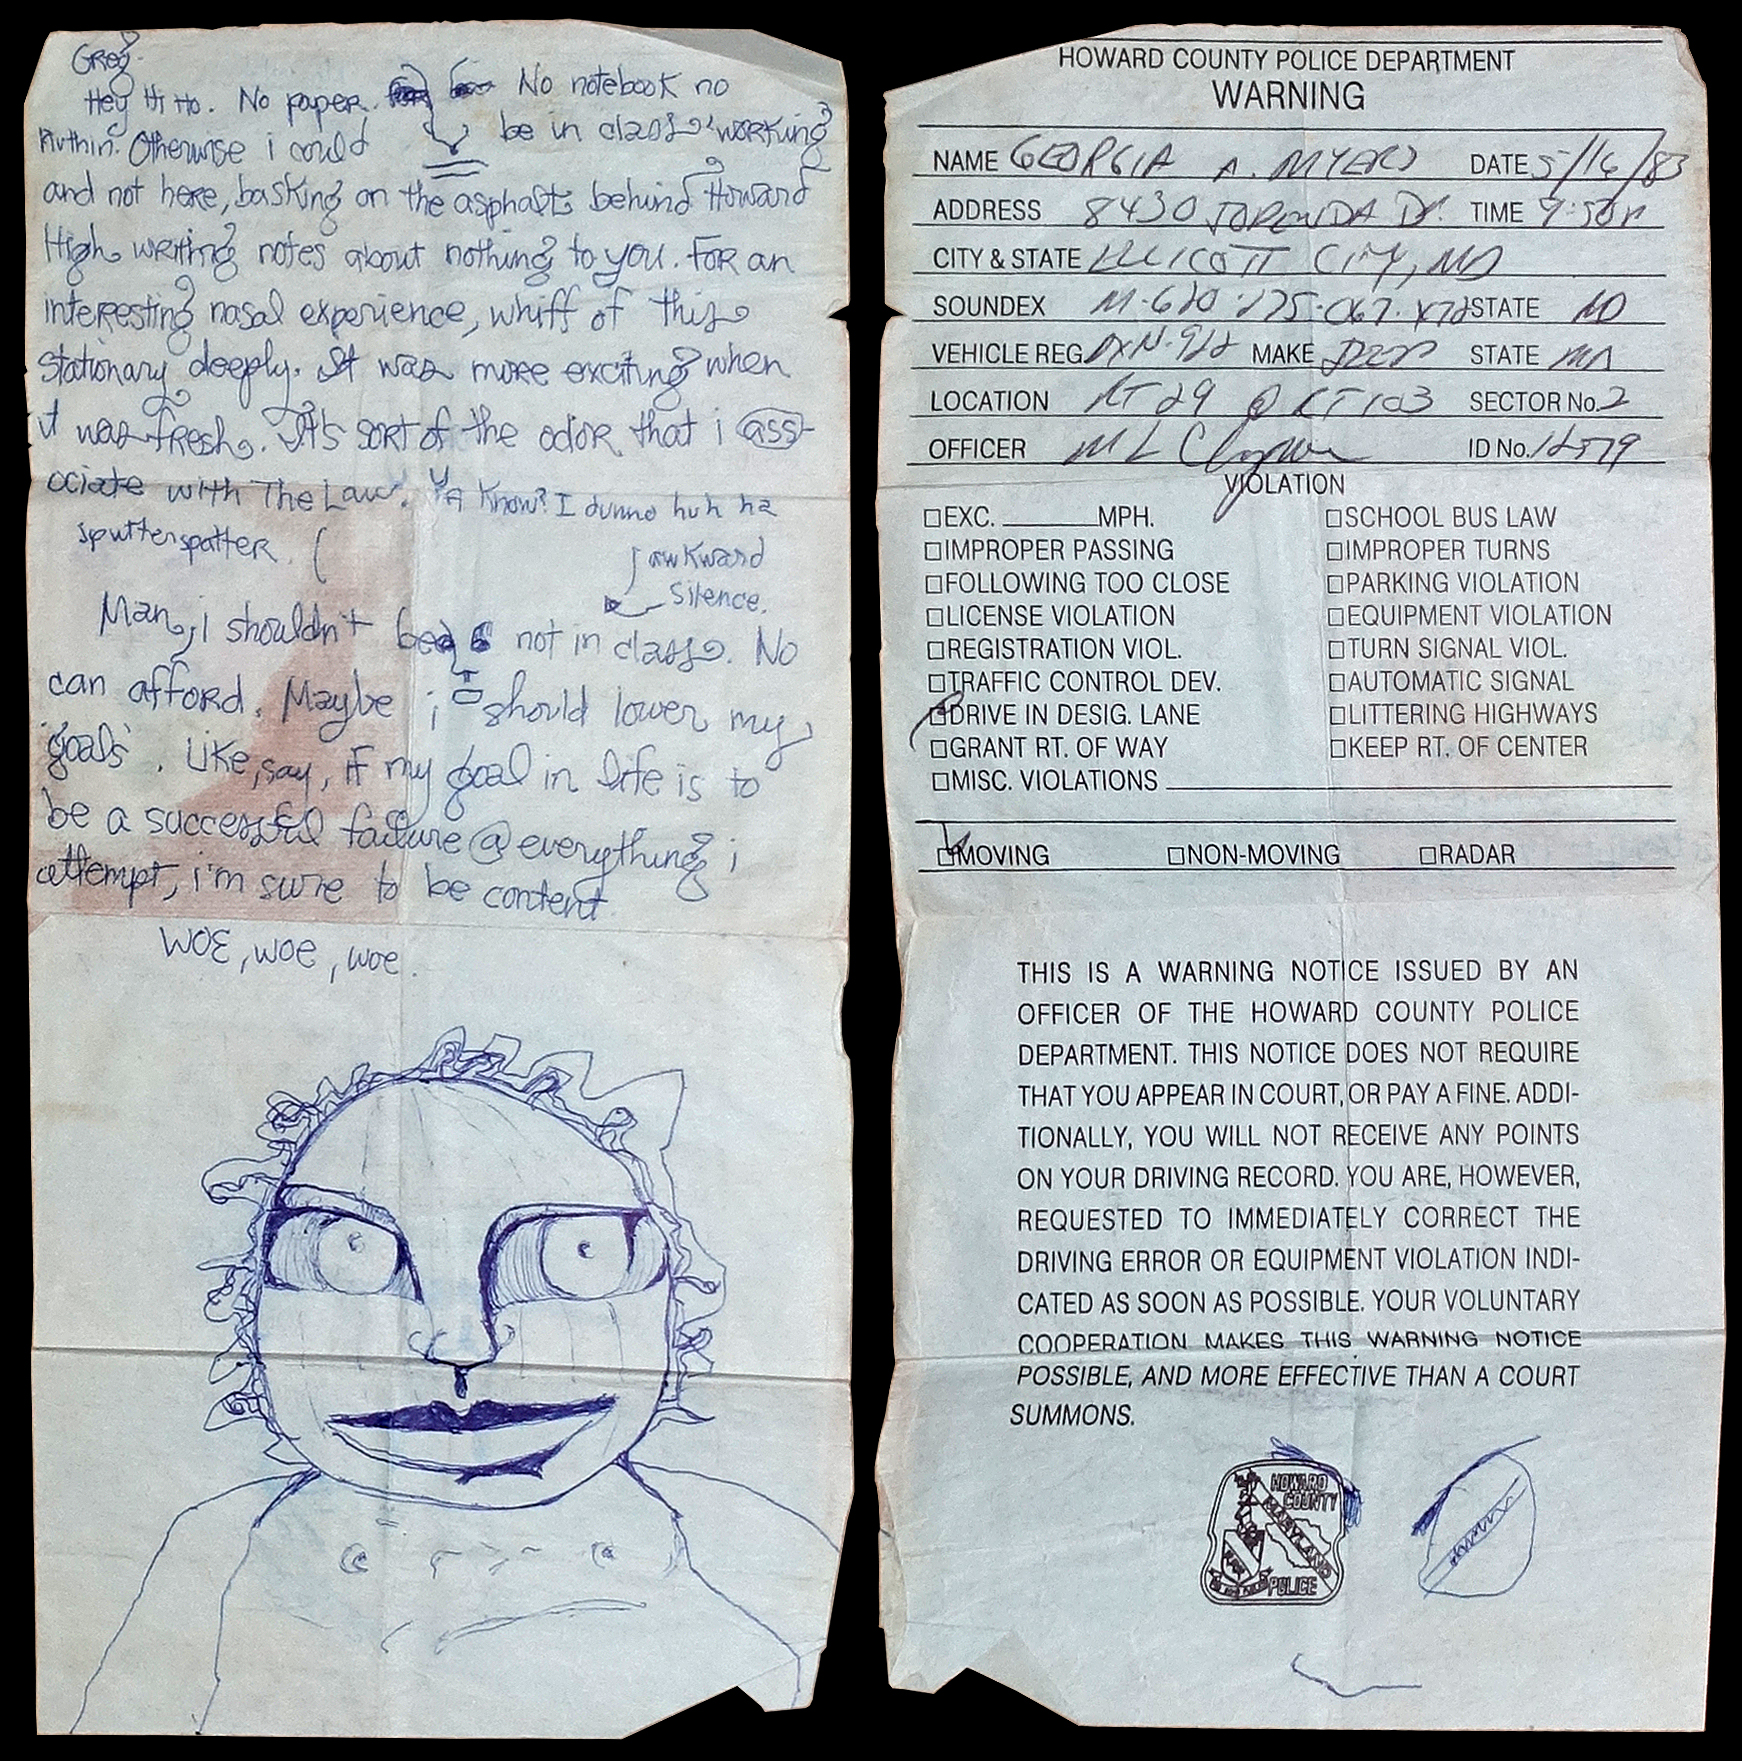 Greg.
Hey Hi Ho. No paper. No notebook no
nuthin. Otherwise i could be in class 'working'
and not here, basking on the asphalt behind Howard
High writing notes about nothing to you. For an
interesting nasal experience, whiff of this
stationary deeply. It was more exciting when
it was fresh. It's sort of the odor that i ass-
ociate with The Law. Ya know? I dunno huh ha
sputterspatter. (
awkward
silence.
Man, i shouldn't be not in class. No
can afford. Maybe i should lower my
'goals'. Like, say, if my goal in life is to
be a successful failure @ everything i
attempt, i'm sure to be content.
WOE, woe, woe.
HOWARD COUNTY POLICE DEPARTMENT
WARNING
NAME GEORGIA A. MYERS DATE 5/16/83
ADDRESS 8430 DR. TIME
CITY & STATE ELLICOTT CITY, MD
SOUNDEX STATE MD
VEHICLE REG. MAKE JEEP STATE MD
LOCATION RT 29 @ RT 103 SECTOR No. 2
OFFICER M L ID No.
VIOLATION
□EXC. ________MPH. □SCHOOL BUS LAW
□IMPROPER PASSING □IMPROPER TURNS
□FOLLOWING TOO CLOSE □PARKING VIOLATION
□LICENSE VIOLATION □EQUIPMENT VIOLATION
□REGISTRATION VIOL. □TURN SIGNAL VIOL.
□TRAFFIC CONTROL DEV. □AUTOMATIC SIGNAL
□DRIVE IN DESIG. LANE □LITTERING HIGHWAYS
□GRANT RT. OF WAY □KEEP RT. OF CENTER
□MISC. VIOLATIONS
□MOVING □NON-MOVING □RADAR
THIS IS A WARNING NOTICE ISSUED BY AN
OFFICER OF THE HOWARD COUNTY POLICE
DEPARTMENT. THIS NOTICE DOES NOT REQUIRE
THAT YOU APPEAR IN COURT, OR PAY A FINE. ADDI-
TIONALLY, YOU WILL NOT RECEIVE ANY POINTS
ON YOUR DRIVING RECORD. YOU ARE, HOWEVER,
REQUESTED TO IMMEDIATELY CORRECT THE
DRIVING ERROR OR EQUIPMENT VIOLATION INDI-
CATED AS SOON AS POSSIBLE. YOUR VOLUNTARY
COOPERATION MAKES THIS WARNING NOTICE
POSSIBLE, AND MORE EFFECTIVE THAN A COURT
SUMMONS.
HOWARD
COUNTY
MARYLAND
POLICE